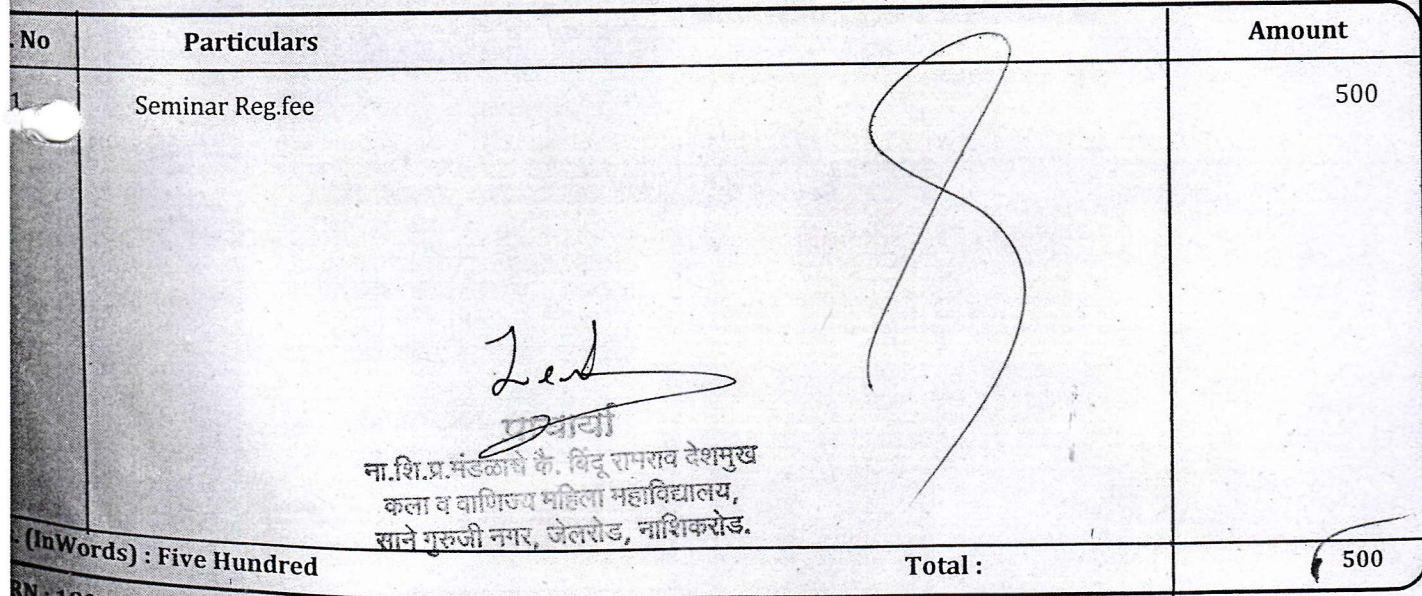 . No Particulars Amount
1 Seminar Reg.fee 500
प्राचार्या
ना.शि.प्र.मंडळाचे कै. बिंदू रामराव देशमुख
कला व वाणिज्य महिला महाविद्यालय,
साने गुरुजी नगर, जेलरोड, नाशिकरोड.
. (InWords) : Five Hundred Total : 500